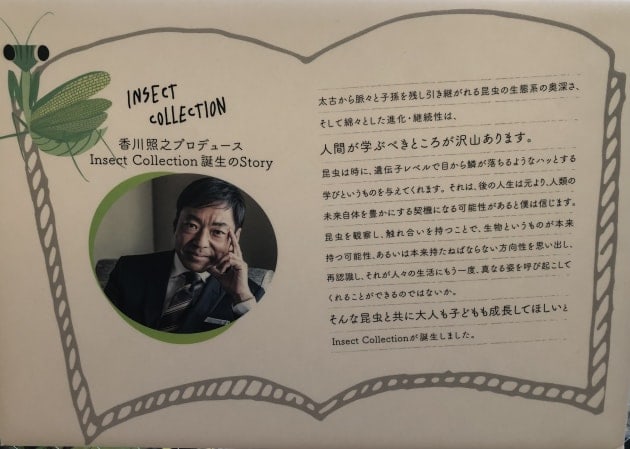 INSECT
COLLECTION
香川照之プロデュース
Insect Collection 誕生のStory
太古から脈々と子孫を残し引き継がれる昆虫の生態系の奥深さ、
そして綿々とした進化・継続性は、
人間が学ぶべきところが沢山あります。
昆虫は時に、遺伝子レベルで目から鱗が落ちるようなハッとする
学びというものを与えてくれます。それは、後の人生は元より、人類の
未来自体を豊かにする契機になる可能性があると僕は信じます。
昆虫を観察し、触れ合いを持つことで、生物というものが本来
持つ可能性、あるいは本来持たねばならない方向性を思い出し、
再認識し、それが人々の生活にもう一度、真なる姿を呼び起こして
くれることができるのではないか。
そんな昆虫と共に大人も子どもも成長してほしいと
Insect Collectionが誕生しました。